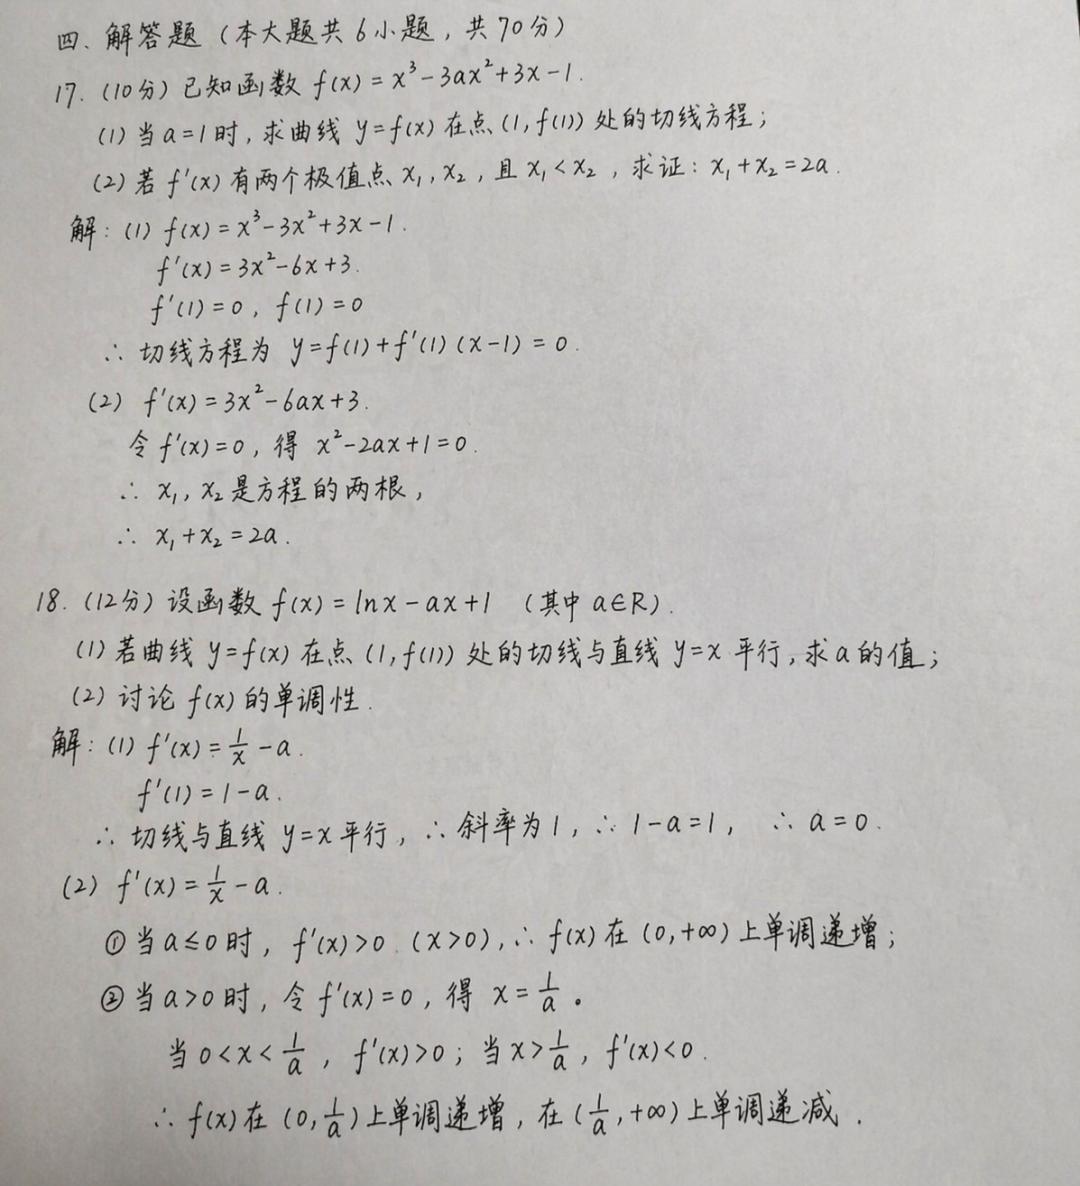 四、解答题（本大题共6小题，共70分）
17.（10分）已知函数 f(x)=x³-3ax²+3x-1.
(1) 当a=1时，求曲线 y=f(x) 在点(1, f(1)) 处的切线方程；
(2) 若 f'(x) 有两个极值点 x₁, x₂，且 x₁<x₂，求证：x₁+x₂=2a.
解：(1) f(x)=x³-3x²+3x-1.
f'(x)=3x²-6x+3.
f'(1)=0, f(1)=0
∴ 切线方程为 y=f(1)+f'(1)(x-1)=0.
(2) f'(x)=3x²-6ax+3.
令 f'(x)=0，得 x²-2ax+1=0.
∴ x₁, x₂ 是方程的两根，
∴ x₁+x₂=2a.
18.（12分）设函数 f(x)=lnx-ax+1 （其中 a∈R）.
(1) 若曲线 y=f(x) 在点 (1, f(1)) 处的切线与直线 y=x 平行，求a的值；
(2) 讨论 f(x) 的单调性.
解：(1) f'(x)=1/x-a.
f'(1)=1-a.
∴ 切线与直线 y=x 平行，∴ 斜率为1，∴ 1-a=1, ∴ a=0.
(2) f'(x)=1/x-a.
① 当a≤0时，f'(x)>0 (x>0)，∴ f(x) 在 (0,+∞) 上单调递增；
② 当a>0时，令 f'(x)=0，得 x=1/a。
当 0<x<1/a，f'(x)>0；当 x>1/a，f'(x)<0.
∴ f(x) 在 (0,1/a) 上单调递增，在 (1/a,+∞) 上单调递减.